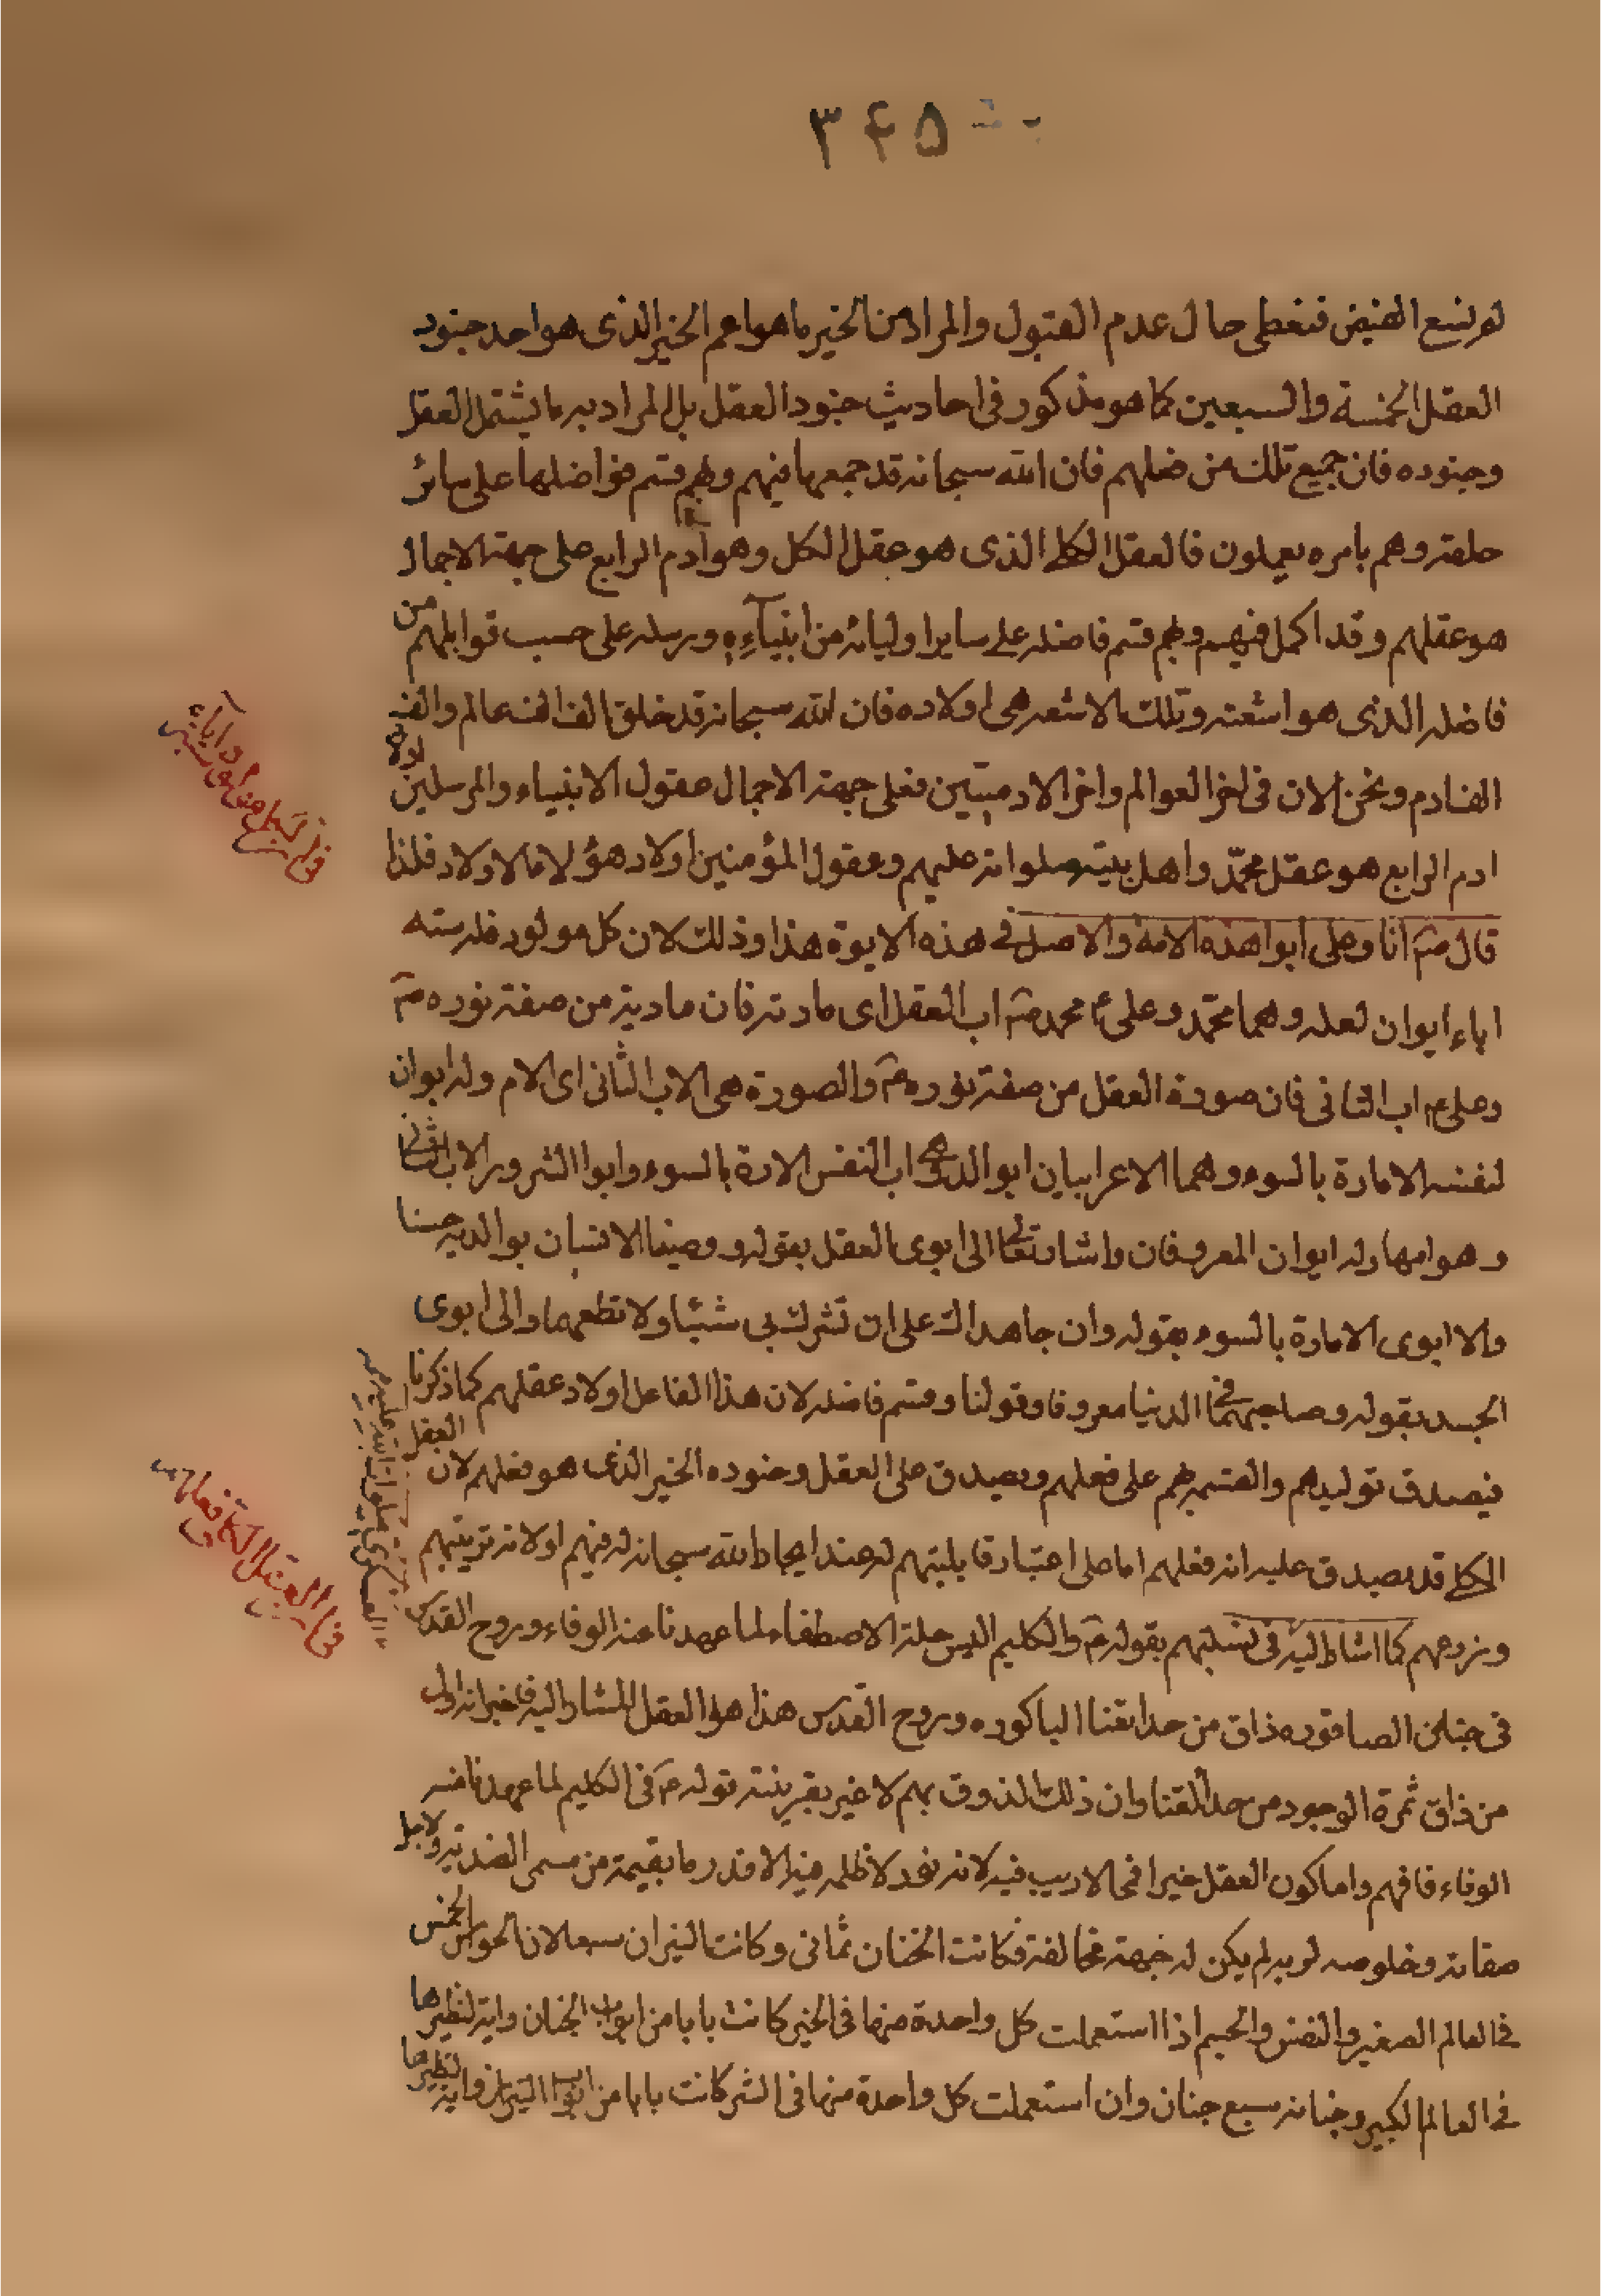 ۳۴۵
لم يسع الفيض فيغطى حال عدم القبول والمراد من الخير ما هو اعم الخير الذى هو احد جنود
العقل الخمسة والسبعين كما هو مذكور فى احاديث جنود العقل بل المراد به ما يشتمل العقل
وجنوده فان جميع تلك من ضلهم فان الله سبحانه قد جمعها فيهم وبهم قسم فواضلها على سائر
خلقه وهم بامره يعملون فالعقل الكلى الذى هو عقل الكل وهو آدم الرابع على جهة الاجمال
هو عقلهم وقد اكمل فيهم وبهم قسم فاضله على ساير اوليائه من انبيآءه ورسله على حسب قوابلهم من
فاضله الذى هو اشعته وتلك الاشعه هى اولاده فان الله سبحانه قد خلق الف الف عالم والف
الف ادم ونحن الان فى اخر العوالم واخر الادميين فعلى جهة الاجمال عقول الانبياء والمرسلين اولاد
ادم الرابع هو عقل محمّد واهل بيته صلواته عليهم وعقول المؤمنين اولاد هؤلاء الاولاد فلذا
قال صۤ انا وعلى ابوا هذه الامة والاصل فى هذه الابوة هذا وذلك لان كل مولود فله ستة
اباء ابوان لعقله وهما محمّد وعلى ع محمد صۤ اب العقل اى مادته فان مادته من صفة نوره صۤ
وعلى ع اب الثانى فان صورة العقل من صفة نوره ع والصورة هى الاب الثانى اى الام وله ابوان
لنفسه الامارة بالسوء وهما الاعرابيان ابو الدواهى اب النفس الامارة بالسوء وابوا الشرور الاب الثانى
وهو امها وله ابوان المعروفان واشار تعالى الى ابوى العقل بقوله ووصينا الانسان بوالديه حسنا
والا ابوى الامارة بالسوء بقوله وان جاهداك على ان تشرك بى شيئا ولا تطعهما والى ابوى
الجسد بقوله وصاحبهما فى الدنيا معروفا وقولنا وقسم فاضله لان هذا الفاعل اولاد عقلهم كما ذكرنا
فيصدق توليدهم والقسم بهم على فعلهم ويصدق على العقل وجنوده الخير الذى هو فعلهم لان العقل
الكلى قد يصدق عليه انه فعلهم اما على اعتبار قابليتهم له عند ايجاد الله سبحانه له فيهم او لانه تربيتهم
وزرعهم كما اشار اليه فى تسليتهم بقوله عۤ والكليم البس حلة الاصطفاء لما عهدنا منه الوفاء وروح القدس
فى جنان الصاقوره ذاق من حدائقنا الباكوره وروح القدس هذا هو العقل المشار اليه فاخبر انه اول
من ذاق ثمرة الوجود من حدائقنا وان ذلك الذوق بهم لا غير بقرينة قوله عۤ فى الكليم لما عهدنا منه
الوفاء فافهم واما كون العقل خيرا فمما لا ريب فيه لانه نور لا ظلمه فيه الا قدر ما بقيمة من مسمى الضدية ولاجل
صفائه وخلوصه لربه لم يكن له جهة مخالفة فكانت الجنان ثمانى وكانت النيران سبعا لان الحواس الخمس
فى العالم الصغير والنفس والجسم اذا استعملت كل واحدة منها فى الخير كانت بابا من ابواب الجنان وايته لنظيرها
فى العالم الكبير وجنانه سبع جنان وان استعملت كل واحدة منها فى الشر كانت بابا من ابواب النيران واية لنظيرها
فى العقل الكلى فعلهم